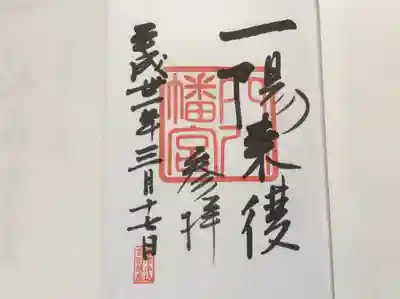 一陽来復
参拝
平成丗一年三月十七日
八
幡宮